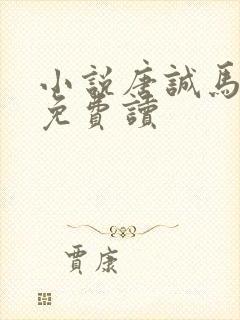 小説唐誠馬
免費讀
賈康